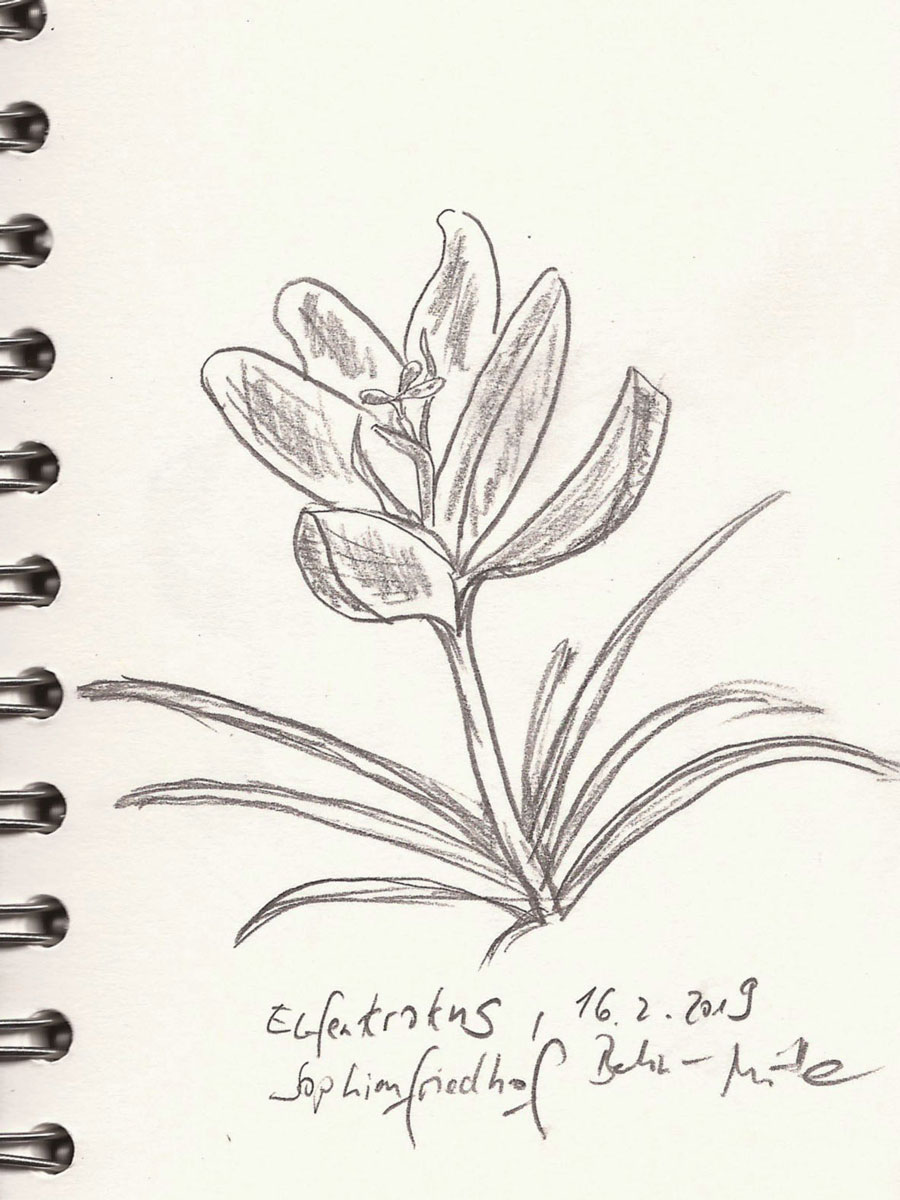 Elfenkrokus, 16.2.2019
Sophienfriedhof Berlin-Mitte